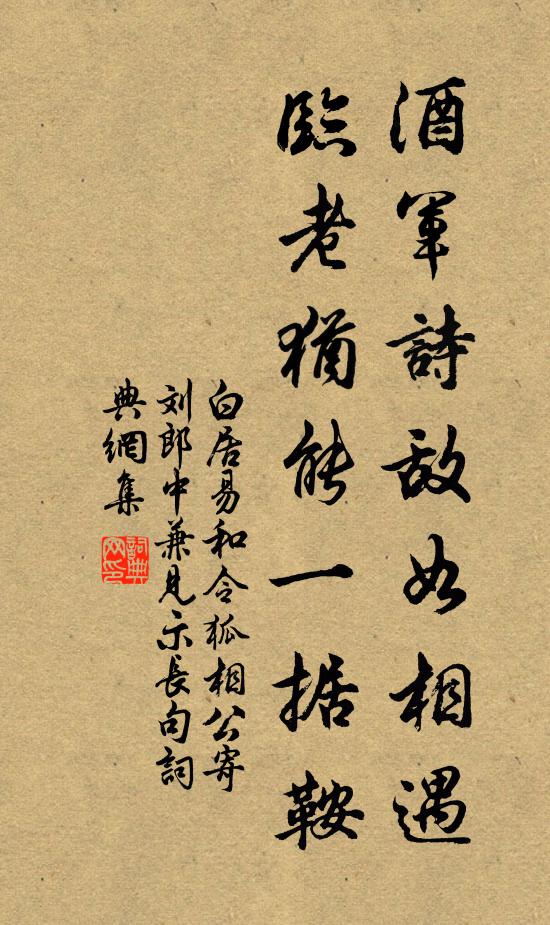 酒军詩敌如相遇
臨老猶能一据鞍
白居易和令狐相公寄
刘郎中兼见示長句詞
典網集
詞典
网印